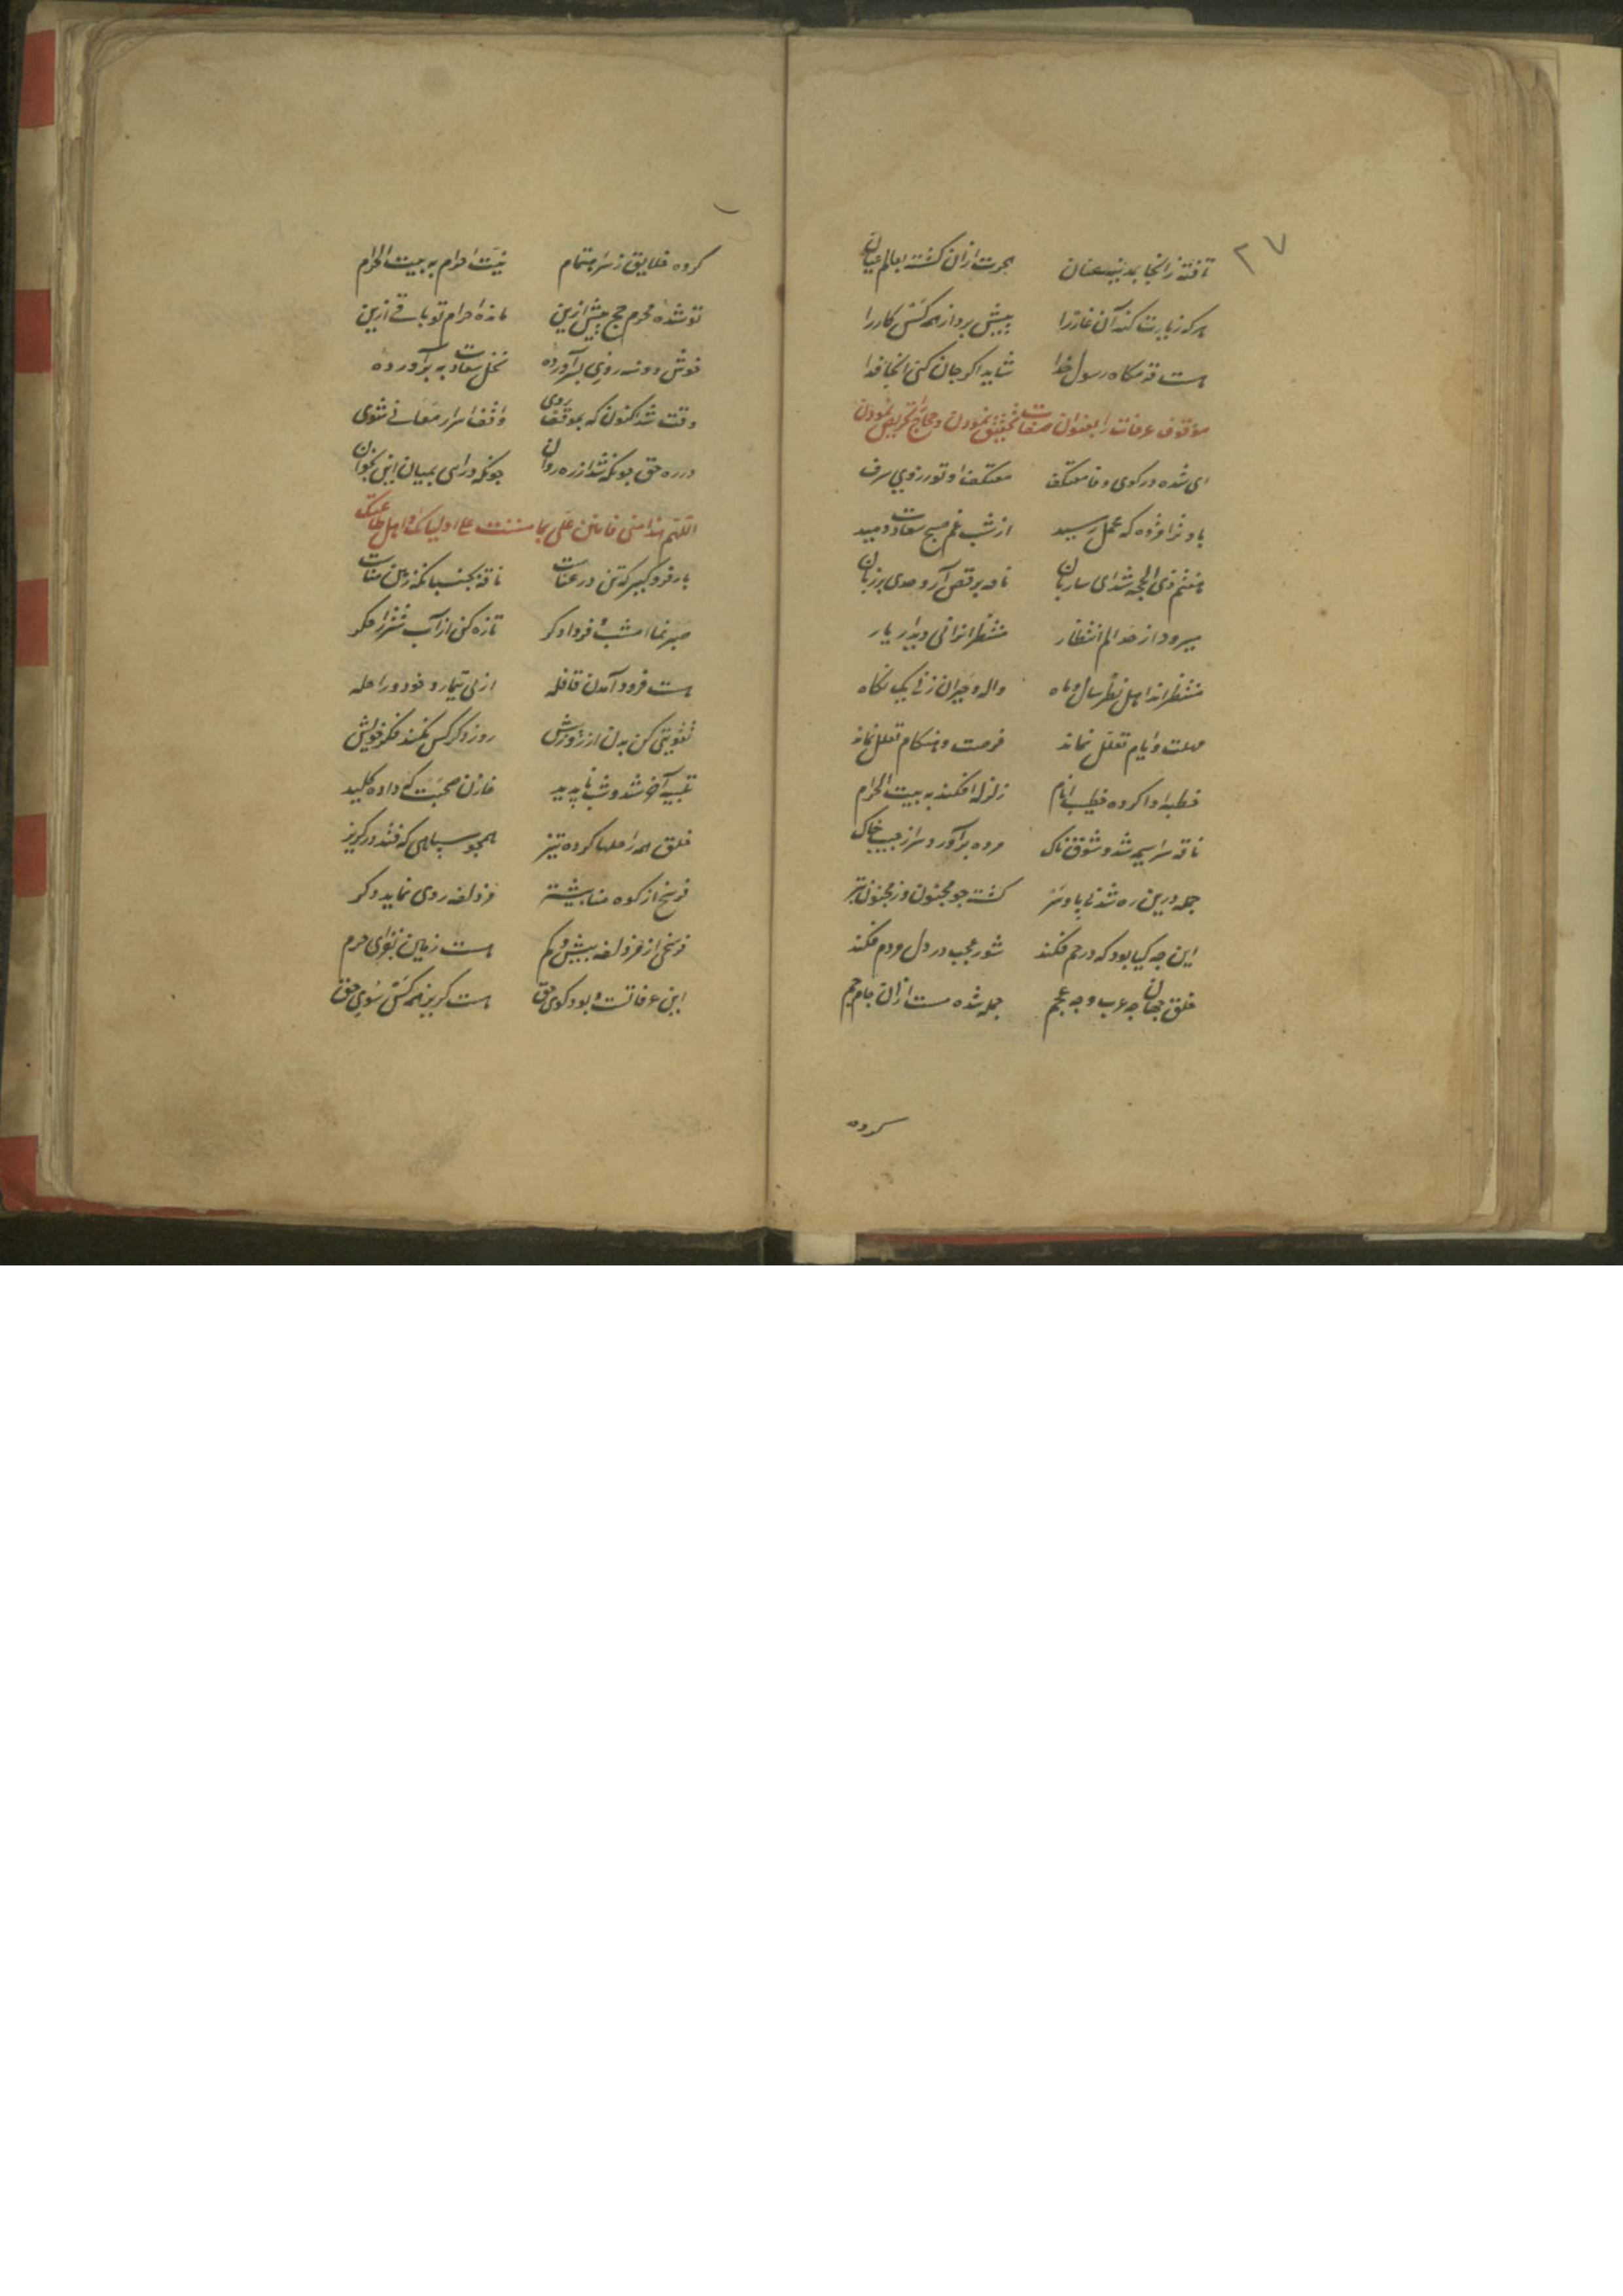 ۲۷
تافته زانجا بمدینه عنان هجرت ازان گشته بعالم عیان
هر که زیارت کند آن غار را پیش برد از همه کس کار را
هست قدمگاه رسول خدا شاید اگر جان کنی آنجا فدا
موقوف عرفات را بعنوان صفات تحقیق نمودن و حجاج را تحریص نمودن
ای شده در کوی وفا معتکف معتکف او تو زروی سرف
باد ترا مژده که محمل رسید از شب غم صبح سعادت دمید
هفتم ذی الحجه شد ای ساربان ناقه برقص آر و حدی بر زبان
میرود از حد الم انتظار منتظرانرا فی دیدار یار
منتظرانند اهل نظر سال و ماه واله و حیران زپی یک نگاه
مهلت و ایام تعلل نماند فرصت و هنگام تعلل نماند
خطبه ادا کرده خطیب انام زلزله افکند به بیت الحرام
ناقه سراسیمه شد و شوقناک مرده برآورد سر از جیب خاک
جمله درین ره شده بی پا و سر گشته چو مجنون و ز مجنون بتر
این چه گیا بود که در خم فکند شور عجب در دل مردم فکند
خلق جهان چه عرب و چه عجم جمله شده مست ازان جام جم
کرده
کرده خلایق ز سر اهتمام نیت احرام به بیت الحرام
تو شده محرم حج پیش ازین مانده احرام تو باقی ازین
خوش دو سه روزی بسر آورده نخل سعادت به بر آورده
وقت شد اکنون که بموقف روی واقف اسرار معانی شوی
در ره حق چونکه شد از ره روان چونکه درآی بمیان این بخوان
اللهم هذا منی فامنن علی بما مننت علی اولیائک و اهل طاعتک
بار فرو گیر که تن در عنات ناقه بخسبان که زمین منات
صبر نما امشب و فردا دگر تازه کن از آب شتر را جگر
هست فرود آمدن قافله از پی تیمار خود و راحله
تقویتی کن بدن از زور خویش روز دگر کس نکند فکر خویش
تعبیه آخر شد و شب ناپدید خازن صحبت که داده کلید
خلق همه راحلها کرده تیز همچو سپاهی که فتد در گریز
فرسخی از کوه منا بیشتر مزدلفه روی نماید دگر
فرسخی از مزدلفه بیش و کم هست زمین بنوای حرم
این عرفاتست و بود کوی حق هست گریز همه کس سوی حق